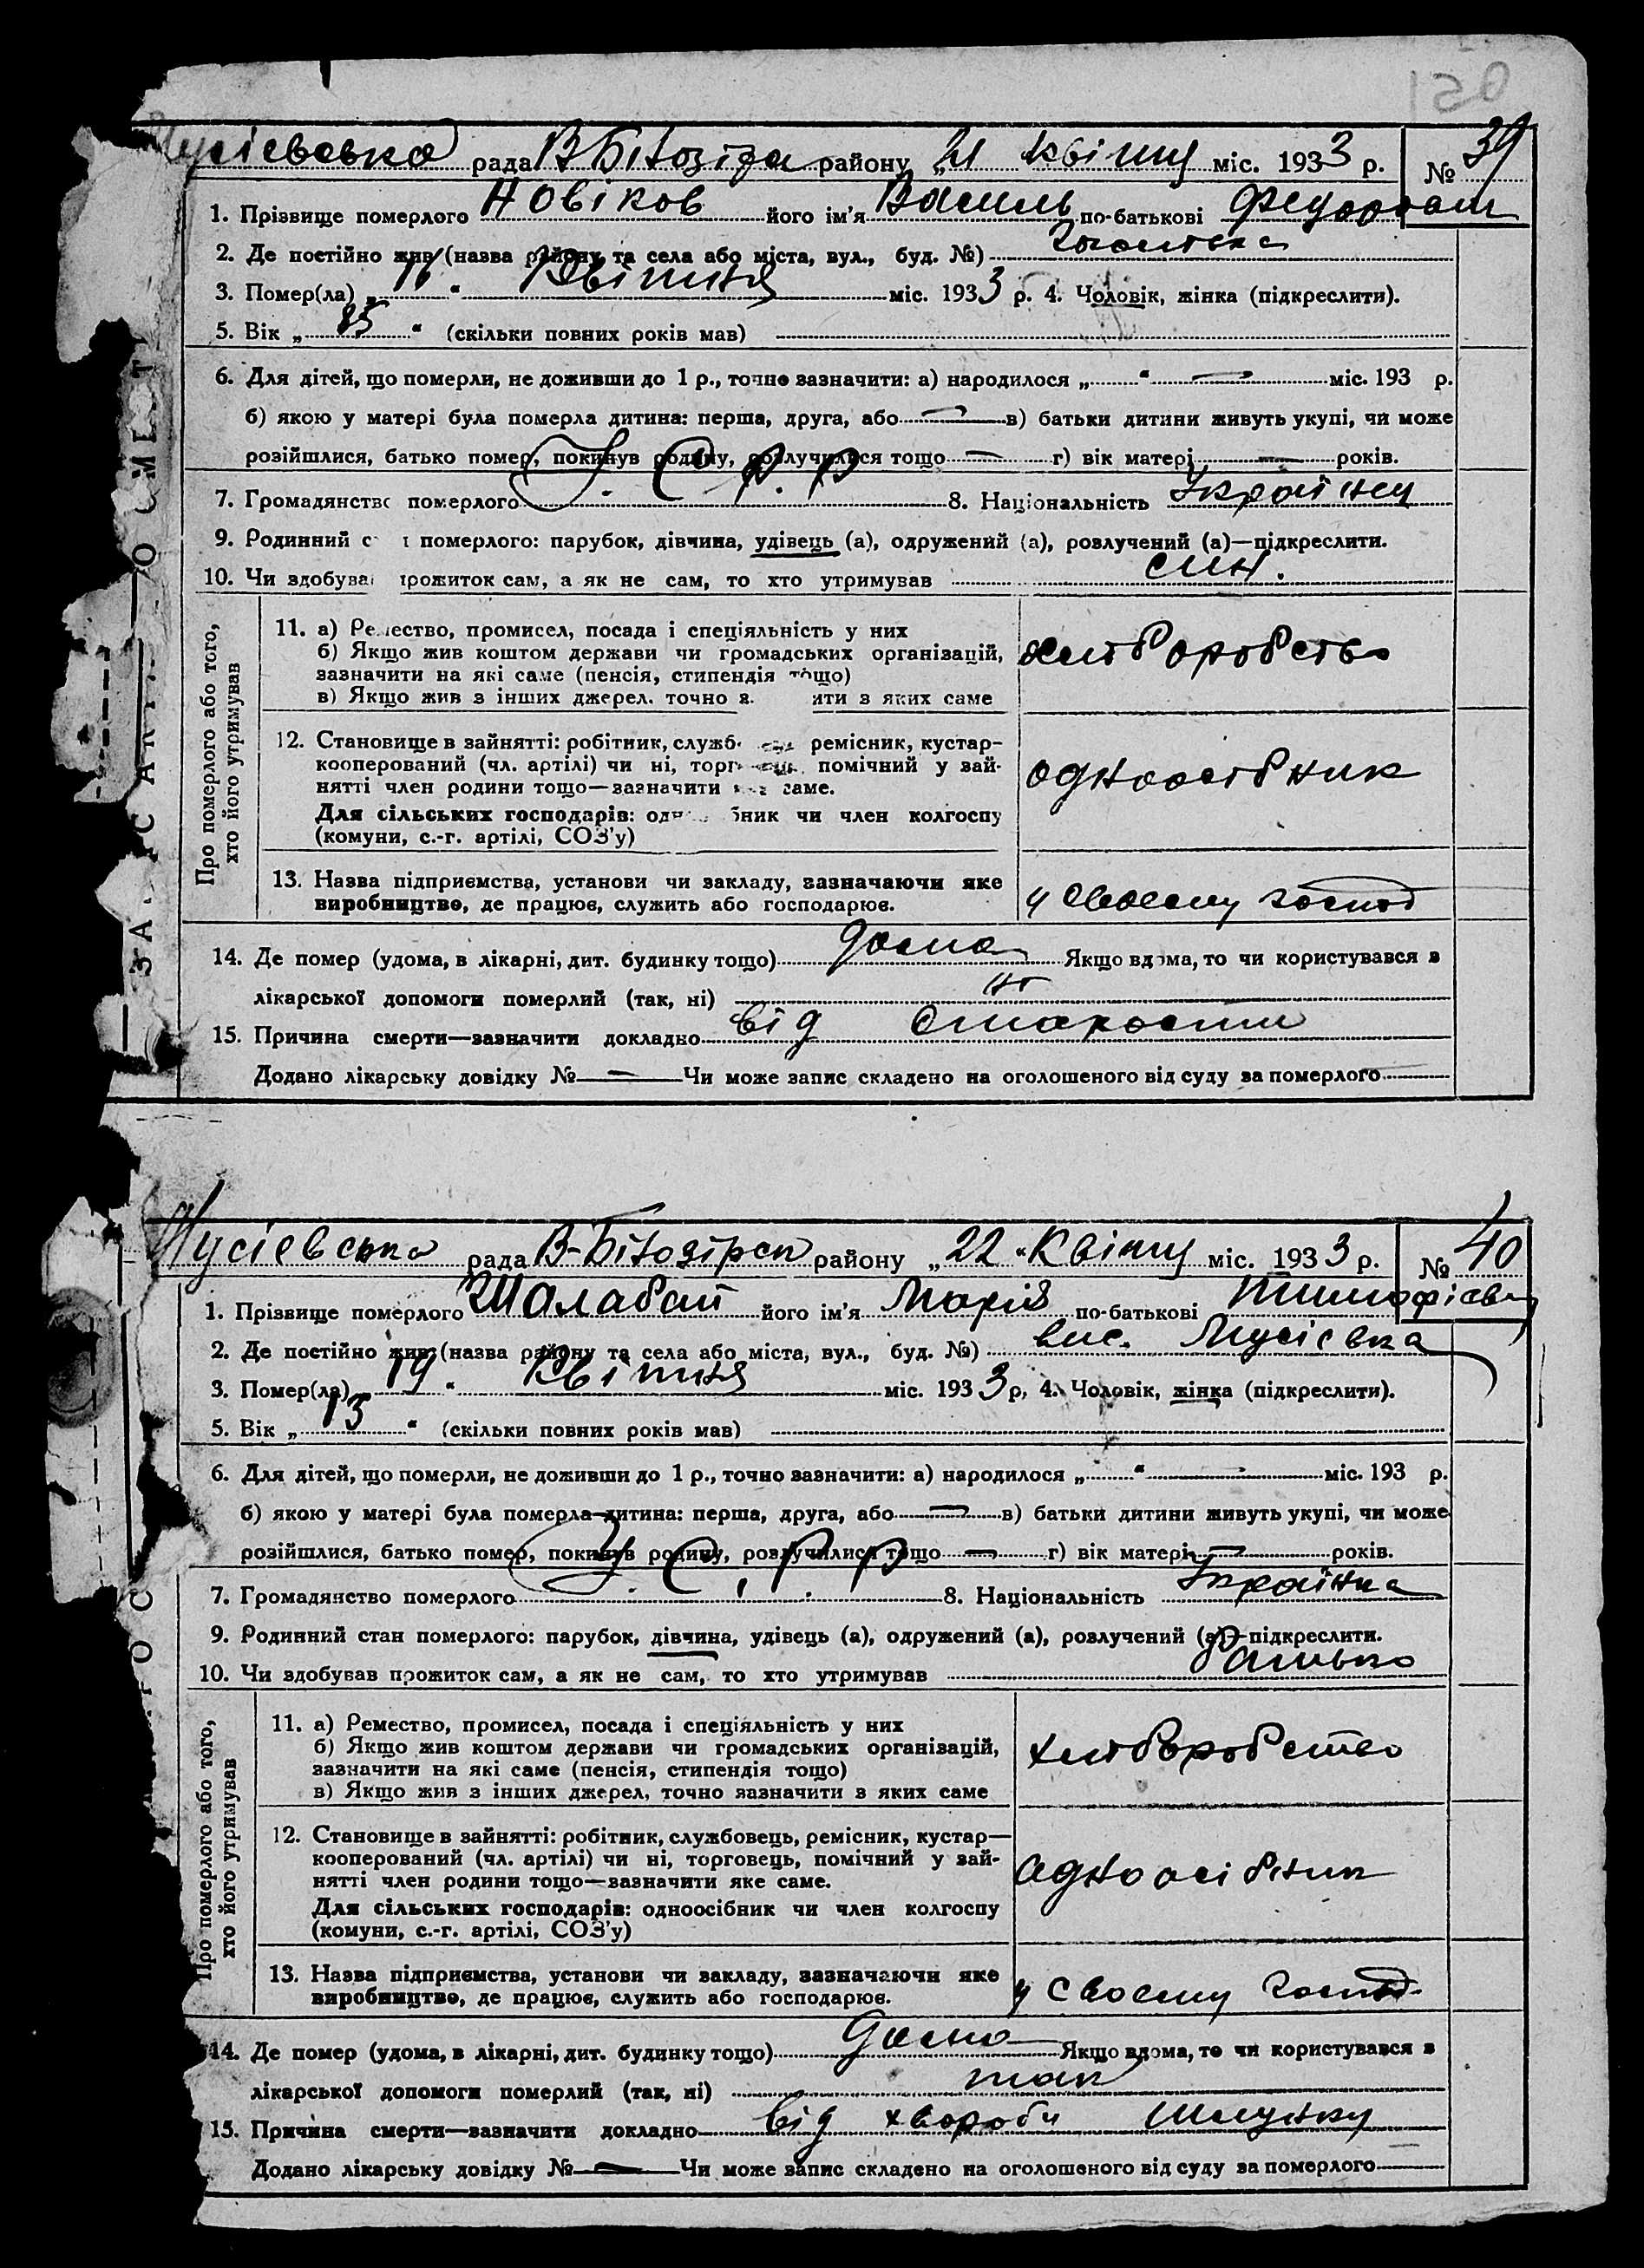 150
Мусієвська рада В-Бітозір району „21 квітня міс. 1933 р. № 39
1. Прізвище померлого Новіков його ім'я Василь по-батькові
2. Де постійно жив (назва району та села або міста, вул., буд. №)
3. Помер(ла) „ “ Квітня міс. 1933 р. 4. Чоловік, жінка (підкреслити).
5. Вік „ 85 “ (скільки повних років мав)
6. Для дітей, що померли, не доживши до 1 р., точно зазначити: а) народилося „ “ — міс. 193 р.
б) якою у матері була померла дитина: перша, друга, або — в) батьки дитини живуть укупі, чи може
розійшлися, батько помер, покинув родину, розлучилися тощо — г) вік матері — років.
7. Громадянство померлого У. С. Р. Р 8. Національність Українец
9. Родинний с померлого: парубок, дівчина, удівець (а), одружений (а), розлучений (а)—підкреслити.
10. Чи здобува прожиток сам, а як не сам, то хто утримував син.
Про померлого або того,
хто його утримував
11. а) Ремество, промисел, посада і спеціяльність у них
б) Якщо жив коштом держави чи громадських організацій,
зазначити на які саме (пенсія, стипендія тощо)
в) Якщо жив з інших джерел, точно з ити з яких саме
хліборобство
12. Становище в зайнятті: робітник, служб ремісник, кустар-
кооперований (чл. артілі) чи ні, торг помічний у зай-
нятті член родини тощо—зазначити саме.
Для сільських господарів: одн бник чи член колгоспу
(комуни, с.-г. артілі, СОЗ'у)
одноосібник
13. Назва підприємства, установи чи закладу, зазначаючи яке
виробництво, де працює, служить або господарює.
у своєму господ
14. Де помер (удома, в лікарні, дит. будинку тощо) дома Якщо вдома, то чи користувався з
лікарської допомоги померлий (так, ні) ні
15. Причина смерти—зазначити докладно від старости
Додано лікарську довідку № — Чи може запис складено на оголошеного від суду за померлого
Мусієвська рада В-Бітозірск району „22 “ Квітня міс. 1933 р. № 40
1. Прізвище померлого Шалабай його ім'я Марія по-батькові Тимофієвн
2. Де постійно жив (назва району та села або міста, вул., буд. №) вис. Мусієвка
3. Помер(ла) „ 19 “ Квітня міс. 1933 р, 4. Чоловік, жінка (підкреслити).
5. Вік „ 13 “ (скільки повних років мав)
6. Для дітей, що померли, не доживши до 1 р., точно зазначити: а) народилося „ “ — міс. 193 р.
б) якою у матері була померла дитина: перша, друга, або — в) батьки дитини живуть укупі, чи може
розійшлися, батько помер, покинув родину, розлучилися тощо — г) вік матері — років.
7. Громадянство померлого У. С. Р. Р 8. Національність Українка
9. Родинний стан померлого: парубок, дівчина, удівець (а), одружений (а), розлучений (а)—підкреслити.
10. Чи здобував прожиток сам, а як не сам, то хто утримував батько
Про померлого або того,
хто його утримував
11. а) Ремество, промисел, посада і спеціяльність у них
б) Якщо жив коштом держави чи громадських організацій,
зазначити на які саме (пенсія, стипендія тощо)
в) Якщо жив з інших джерел, точно зазначити з яких саме
хліборобство
12. Становище в зайнятті: робітник, службовець, ремісник, кустар—
кооперований (чл. артілі) чи ні, торговець, помічний у зай-
нятті член родини тощо—зазначити яке саме.
Для сільських господарів: одноосібник чи член колгоспу
(комуни, с.-г. артілі, СОЗ'у)
одноосібник
13. Назва підприємства, установи чи закладу, зазначаючи яке
виробництво, де працює, служить або господарює.
у своєму господ.
14. Де помер (удома, в лікарні, дит. будинку тощо) дома Якщо вдома, то чи користувався з
лікарської допомоги померлий (так, ні) так
15. Причина смерти—зазначити докладно від хвороби шлунку
Додано лікарську довідку № — Чи може запис складено на оголошеного від суду за померлого